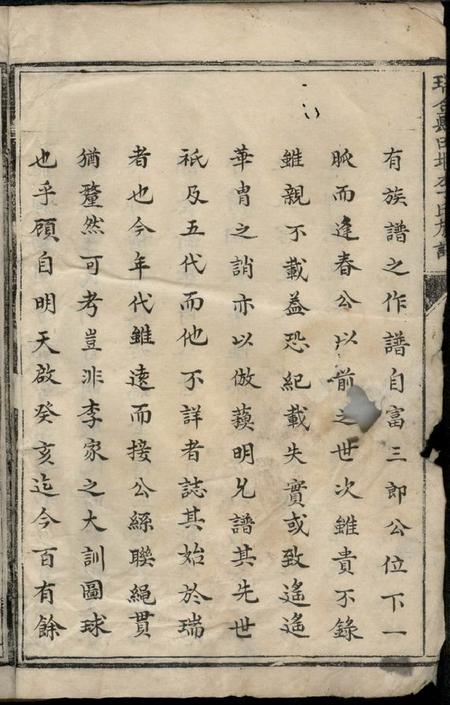 有族譜之作譜自富三郎公位下一
脉而逢春公以前之世次雖貴不錄
雖親不載蓋恐紀載失實或致遙遙
華胄之誚亦以倣蘋明兄譜其先世
祇及五代而他不詳者誌其始於瑞
者也今年代雖遠而接公繇聯繩貫
猶釐然可考豈非李家之大訓圖球
也乎顧自明天啟癸亥迄今百有餘